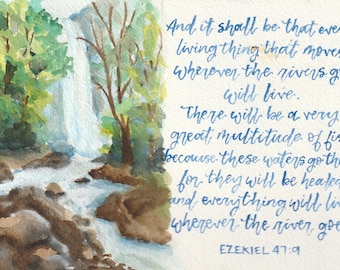 And it shall be that ever
living thing that moves
wherever the rivers go
will live.
There will be a very
great multitude of fis
because these waters go th
for they will be healed
and everything will liv
wherever the river goe
EZEKIEL 47:9